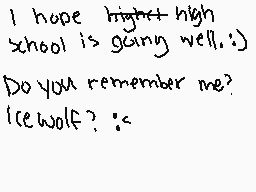 I hope highet high
school is going well. :)
Do you remember me?
Icewolf? :<